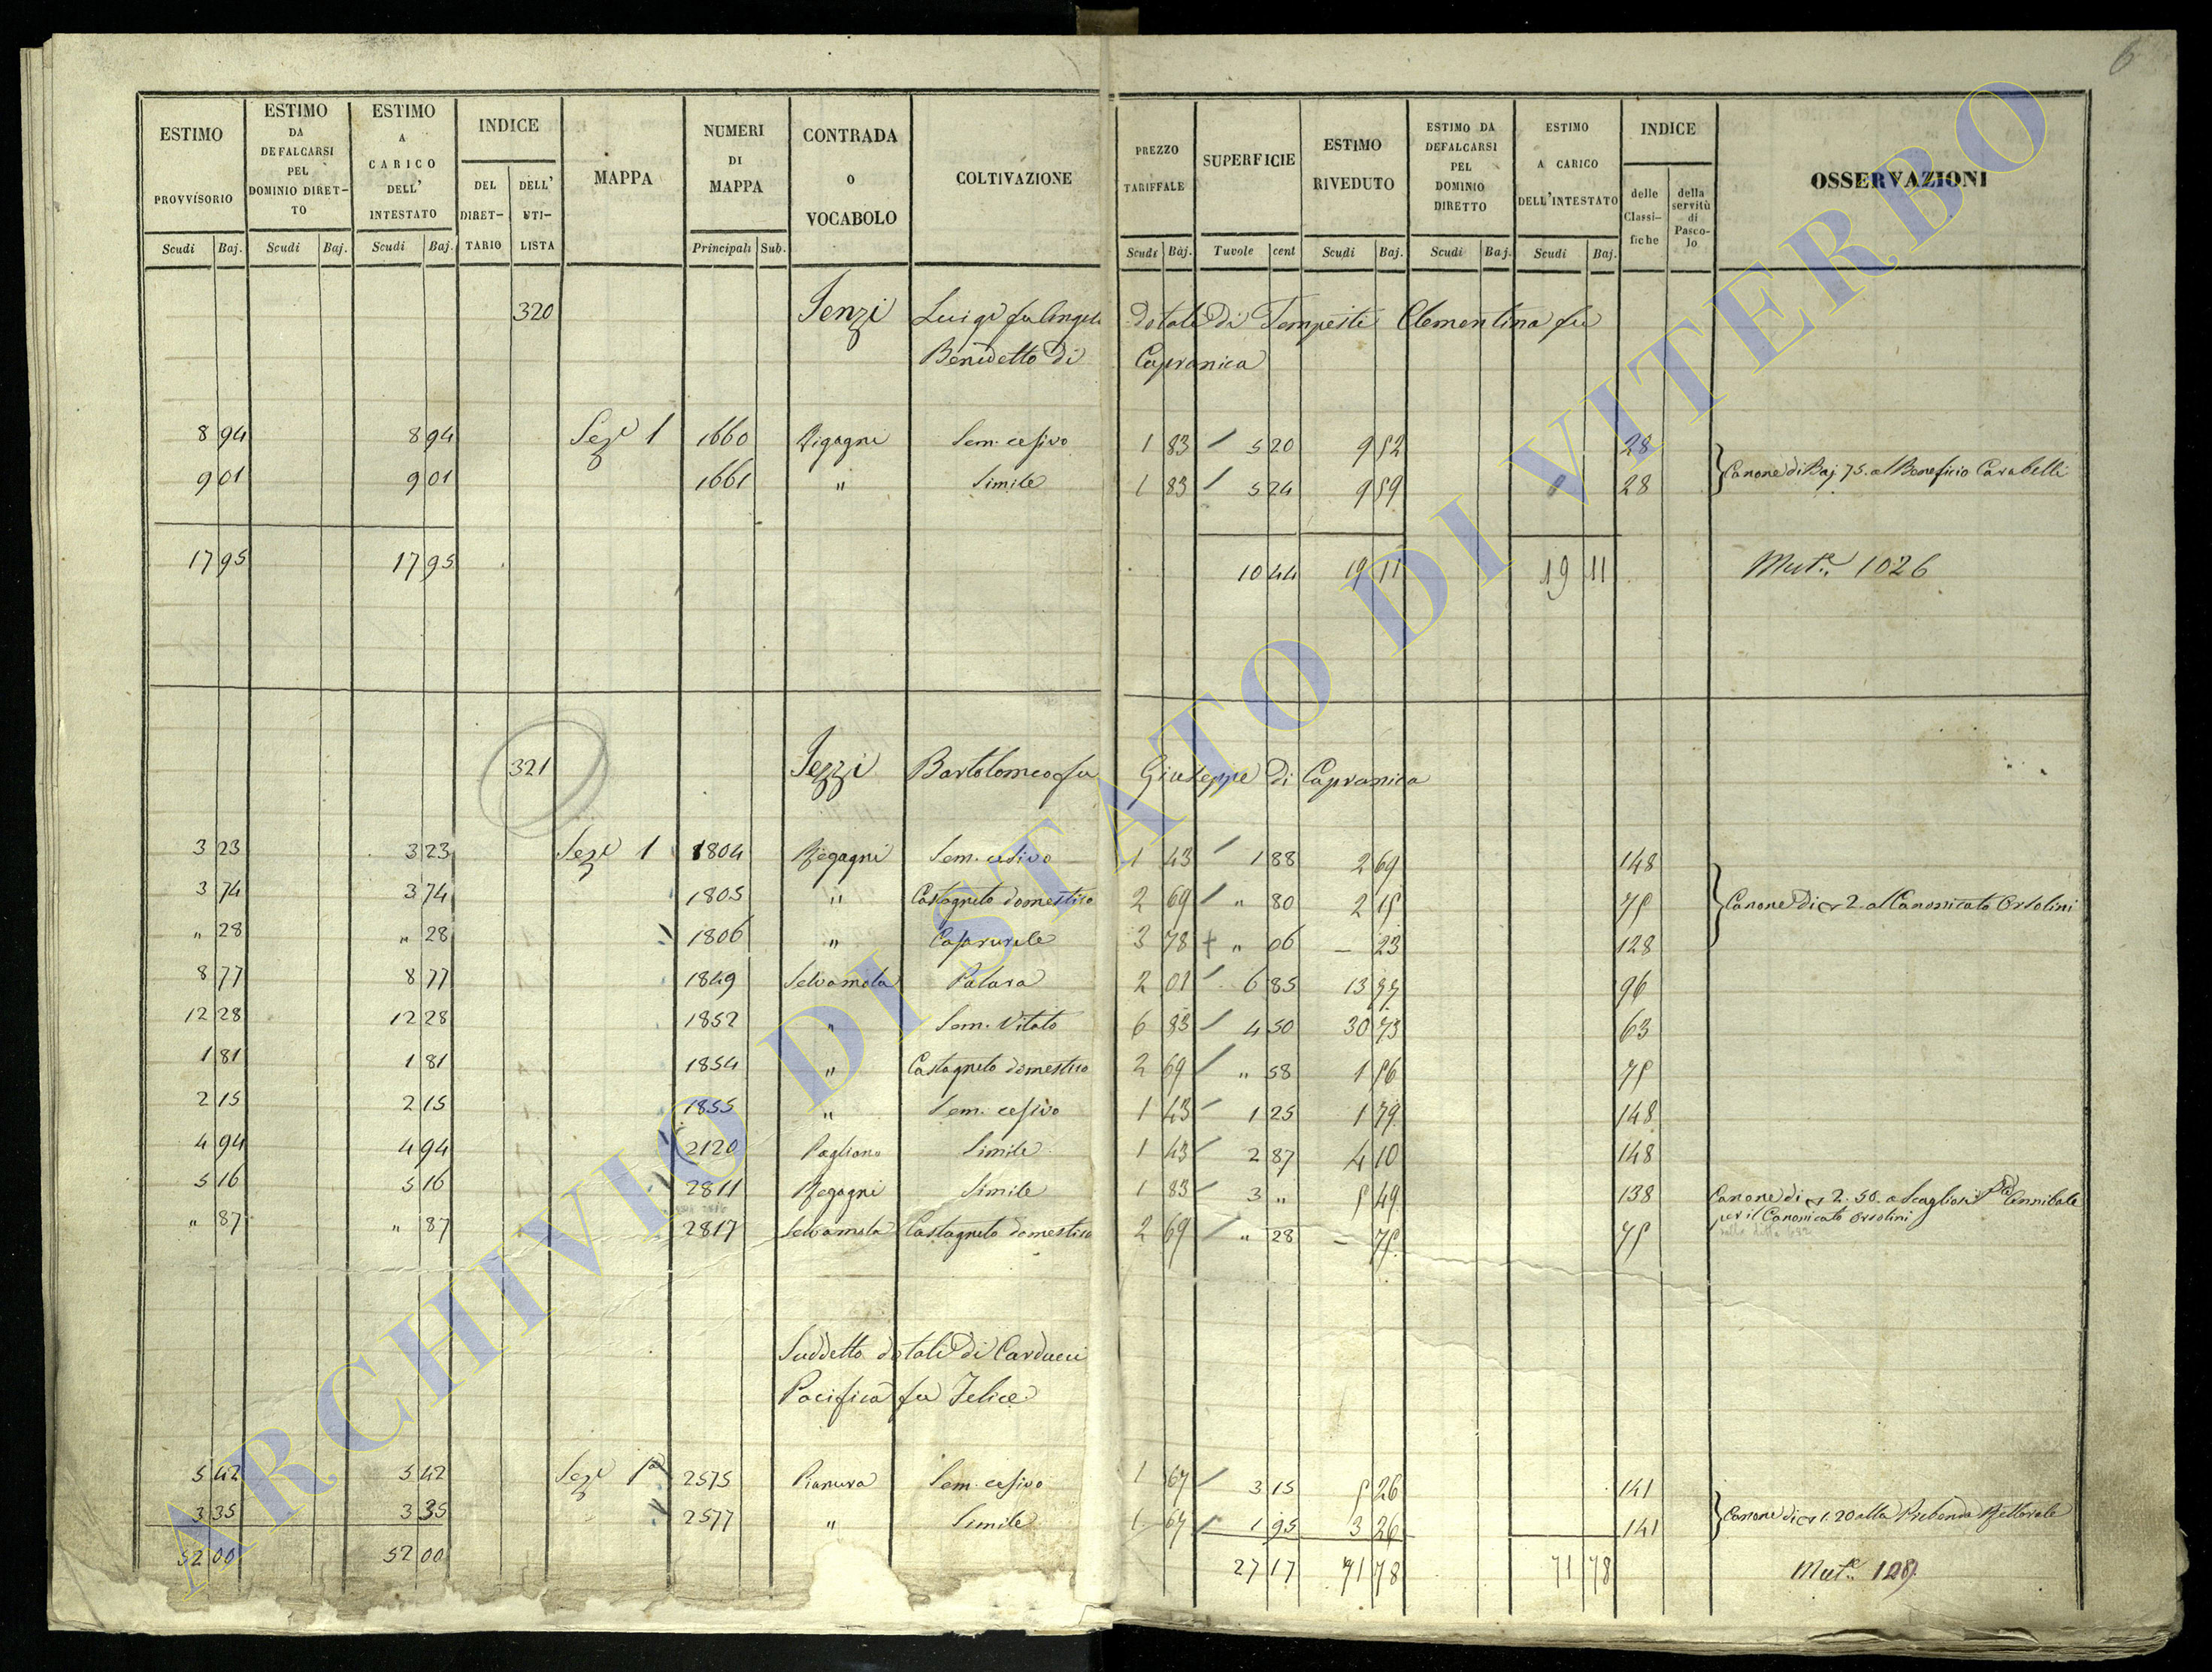 6
ESTIMO PROVVISORIO Scudi Baj.
ESTIMO DA DEFALCARSI PEL DOMINIO DIRETTO Scudi Baj.
ESTIMO A CARICO DELL' INTESTATO Scudi Baj.
INDICE DEL DIRETTARIO DELL' UTILISTA
MAPPA
NUMERI DI MAPPA Principali Sub.
CONTRADA O VOCABOLO
COLTIVAZIONE
PREZZO TARIFFALE Scudi Baj.
SUPERFICIE Tavole cent
ESTIMO RIVEDUTO Scudi Baj.
ESTIMO DA DEFALCARSI PEL DOMINIO DIRETTO Scudi Baj.
ESTIMO A CARICO DELL'INTESTATO Scudi Baj.
INDICE delle Classifiche della servitù di Pascolo
OSSERVAZIONI
320 Luigi fu Angelo dotale di Tempesti Clementina fu
Benedetto di Capranica
8 94 8 94 Sezе 1 1660 Sem. cesivo 1 83 5 20 9 52 28
Canone di Baj 75. al Beneficio Carabelli
9 01 9 01 1661 " Simile 1 83 5 24 9 59 28
17 95 17 95 10 44 19 11 19 11 Mut.e 1026
321 Bartolomeo fu Giuseppe di Capranica
3 23 3 23 Seze 1 1804 Regagni Sem. cesivo 1 43 1 88 2 69 148
3 74 3 74 1805 " Castagneto domestico 2 69 " 80 2 15 75 Canone di 2. al Canonicato Orsolini
" 28 " 28 1806 " Casa rurale 3 78 " 06 – 23 128
8 77 8 77 1849 Selvamola 2 01 6 85 13 77 96
12 28 12 28 1852 " Sem. Vitato 6 83 4 50 30 73 63
1 81 1 81 1854 " Castagneto domestico 2 69 " 58 1 56 75
2 15 2 15 1855 " Sem. cesivo 1 43 1 25 1 79 148
4 94 4 94 2120 Pogliano Simile 1 43 2 87 4 10 148
5 16 5 16 2811 Regagni Simile 1 83 3 " 5 49 138 Canone di 2. 50. a Scaglioni Annibale
per il Canonicato Orsolini
" 87 " 87 2817 Selvamola Castagneto domestico 2 69 " 28 – 75 75
Suddetto dotali di Carducci
Pacifica fu Felice
5 42 5 42 Seze 1a 2575 Pianura Sem. cesivo 1 67 3 15 5 26 141
3 35 3 35 2577 " Simile 1 67 1 95 3 26 141 Canone di 1. 20 alla Prebenda Rettorale
52 00 52 00 27 17 71 78 71 78 Mut.e
ARCHIVIO DI STATO DI VITERBO